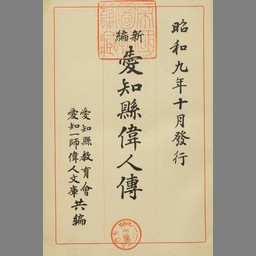 昭和九年十月發行
新編
愛知縣偉人傳
愛知縣教育會
愛知一師偉人文庫
共編